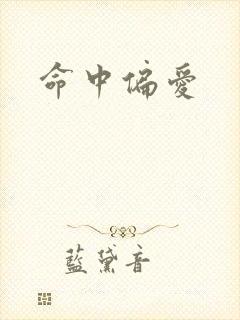 命中偏愛
藍黛音